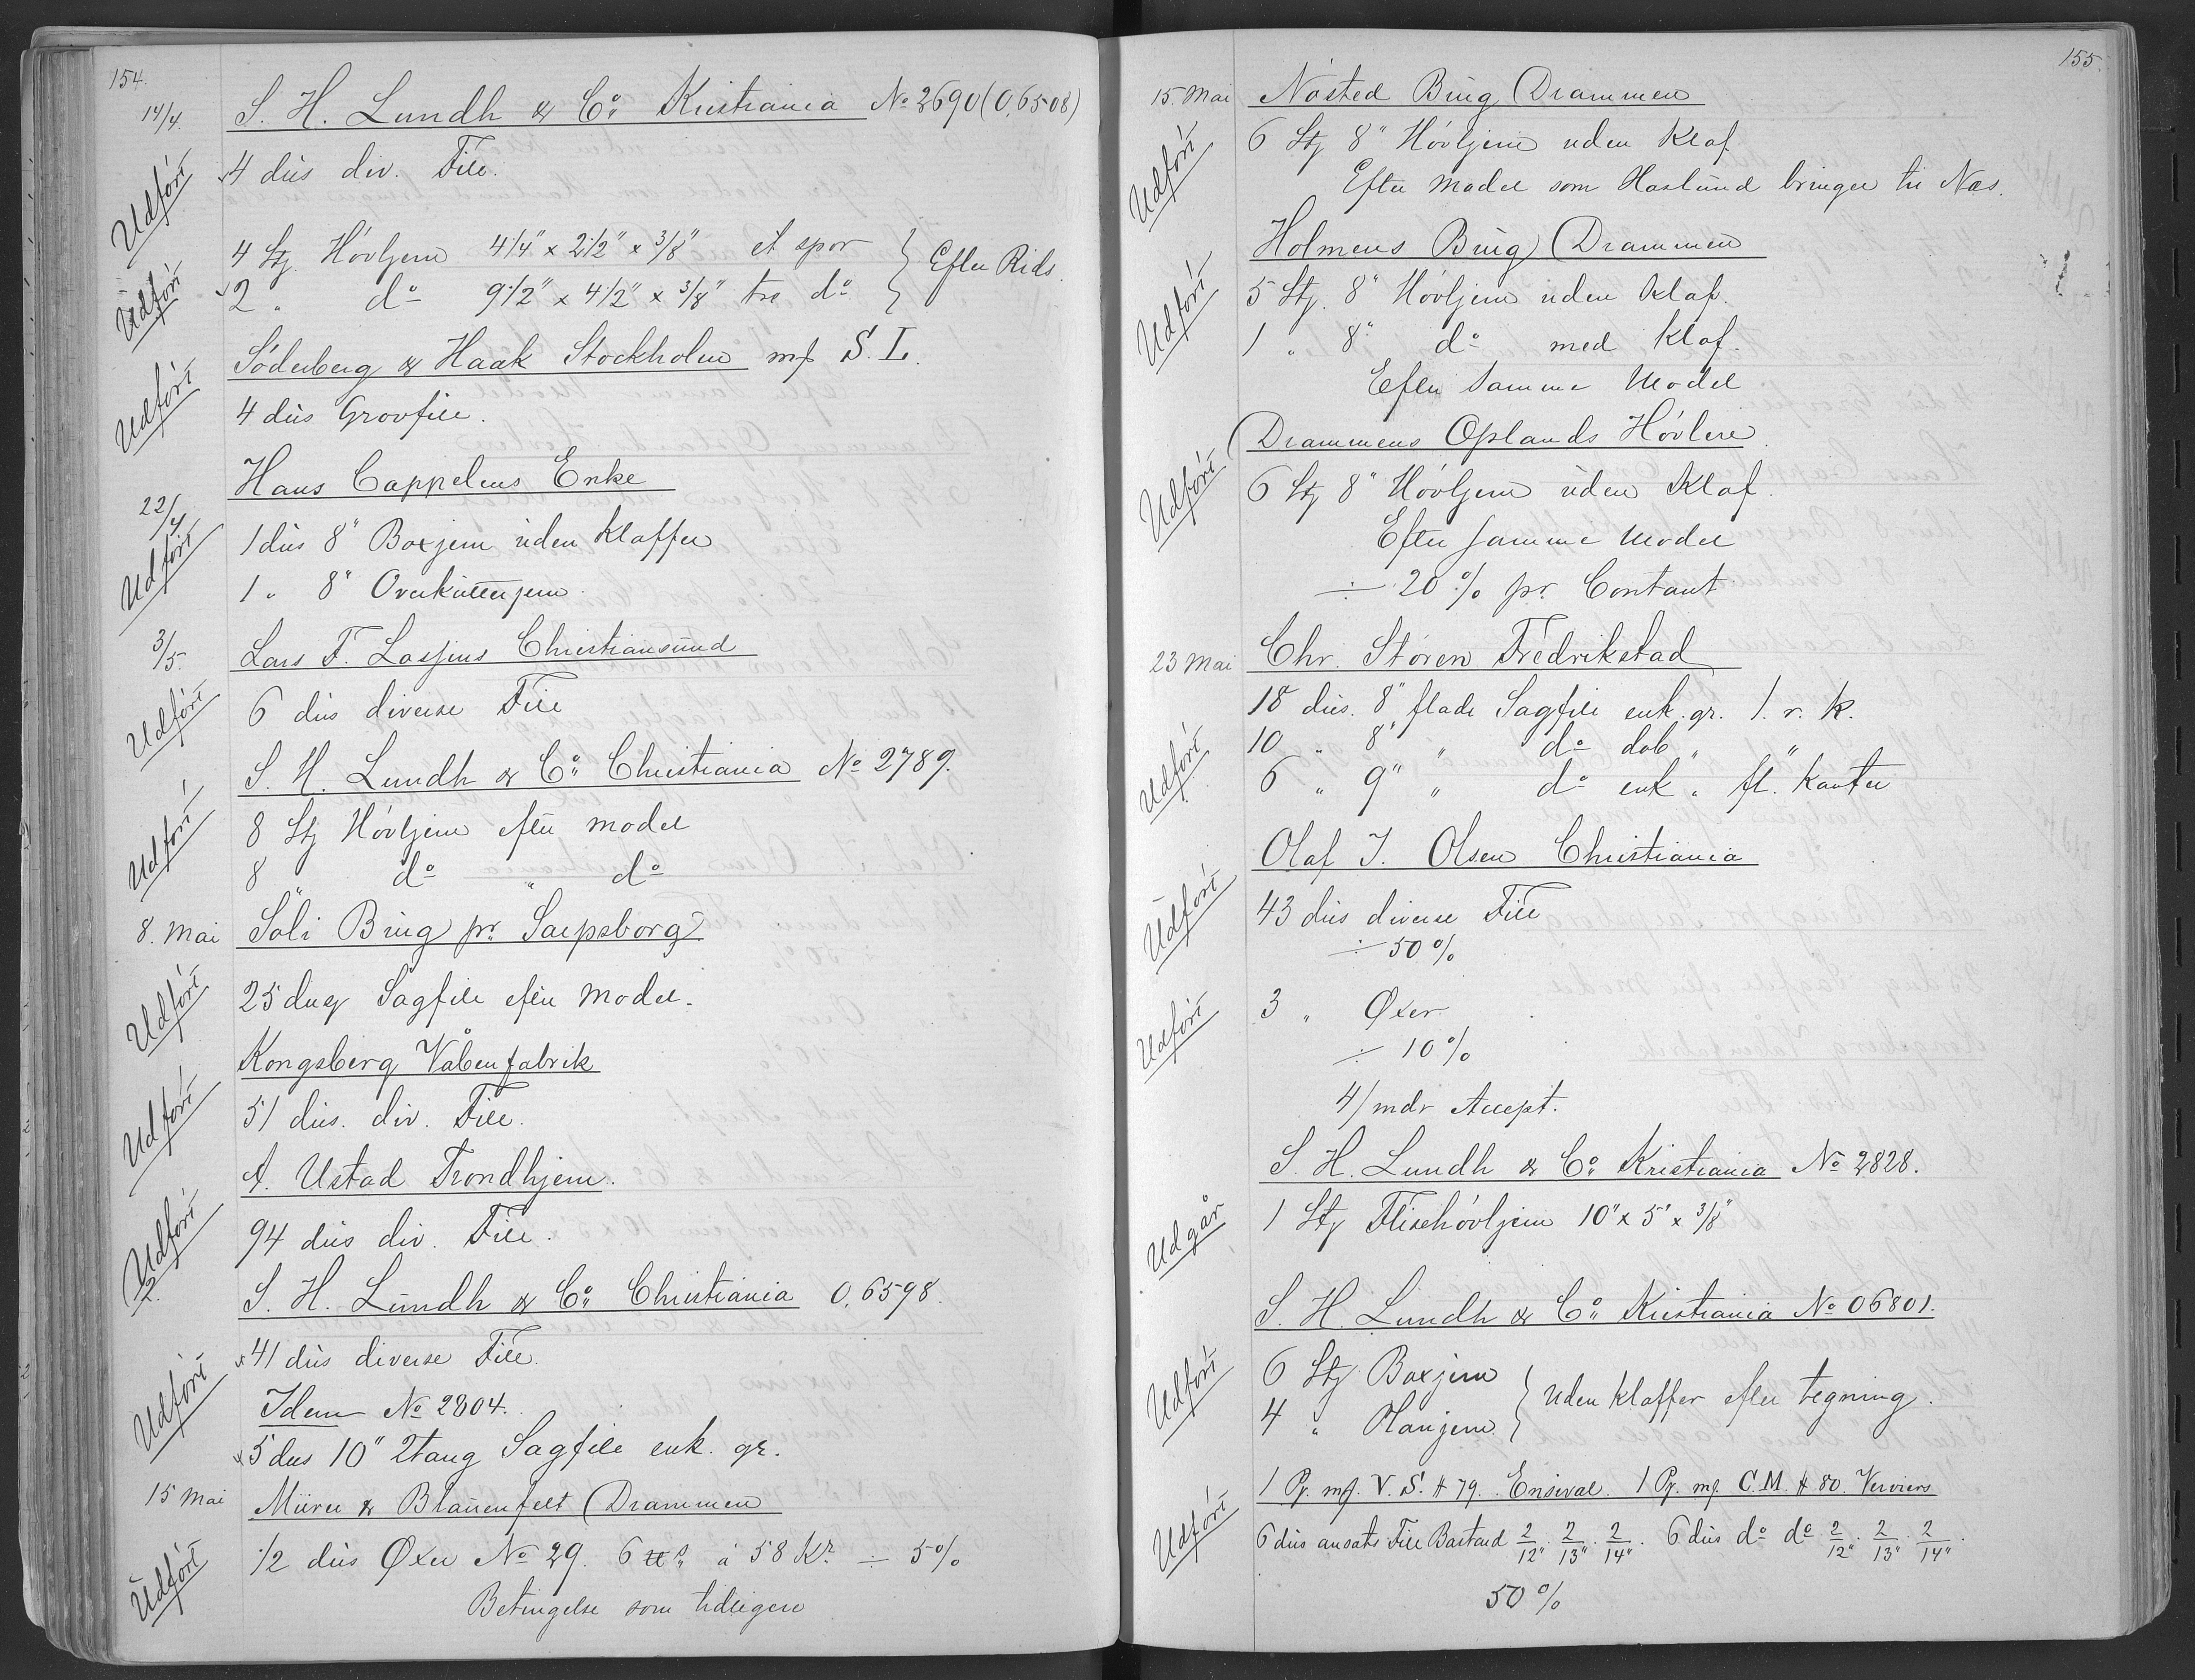 154.
14/4. S. H. Lundh & Co. Kristiania No 2690 (0,6508)
Udført 4 dus div. File.
4 Stg. Høvljern 4 1/4" x 2 1/2" x 3/8" et spor } Efter Rids.
Udført 2 " do 9 1/2" x 4 1/2" x 3/8" tre do }
Söderberg & Haak Stockholm mf S. L.
Udført 4 dus Grovfile.
Hans Cappelens Enke
22/4 1 dus 8" Boxjern uden Klaffer
Udført 1 " 8" Overkutterjern
3/5. Lars F. Lossius Christiansund
Udført 6 dus diverse File
S. H. Lundh & Co. Christiania No 2789.
Udført 8 Stg Høvljern efter model
8 do " do
8. Mai Soli Brug pr. Sarpsborg
Udført 25 dus Sagfile efter Model.
Kongsberg Våbenfabrik
Udført 51 dus. div. File.
A. Ustad Trondhjem.
Udført 94 dus div. File.
S. H. Lundh & Co. Christiania 0,6598.
Udført 41 dus diverse File.
Idem No 2804.
5 dus 10" 2tang Sagfile enk. gr.
15 Mai & Blauenfelt Drammen
Udført 1/2 dus Øxer No 29. 6 à 58 Kr. ÷ 5%
Betingelse som tidligere
155.
15. Mai Nøsted Brug Drammen
Udført 6 Stg 8" Høvljern uden Klaf
Efter Model som Haslund bringer til Næs.
Holmens Brug Drammen
Udført 5 Stg. 8" Høvljern uden Klaf.
1 " 8" do med Klaf.
Efter samme Model
Drammens Oplands Høvleri
Udført 6 Stg 8" Høvljern uden Klaf.
Efter samme Model
÷ 20% pr. Contant
23 Mai Chr. Støren Fredrikstad
18 dus. 8" flade Sagfile enk. gr. 1. r. k.
Udført 10 " 8" " do dob " "
6 " 9" " do enk " fl. Kanter
Olaf J. Olsen Christiania
Udført 43 dus diverse File
÷ 50%
Udført 3 " Øxer
÷ 10%
4/mdr Accept.
S. H. Lundh & Co. Kristiania No 2828.
Udgår 1 Stg Flisehøvljern 10" x 5" x 3/8"
S. H. Lundh & Co. Kristiania No 06801.
Udført 6 Stg Boxjern } uden Klaffer efter tegning.
4 " Planjern }
1 Pz. mf. V. S. # 79. Ensival. 1 Pz. mf. C. M. # 80. Verviers
Udført 6 dus ansats File Bastard 2/12". 2/13". 2/14". 6 dus do do 2/12". 2/13". 2/14".
50%